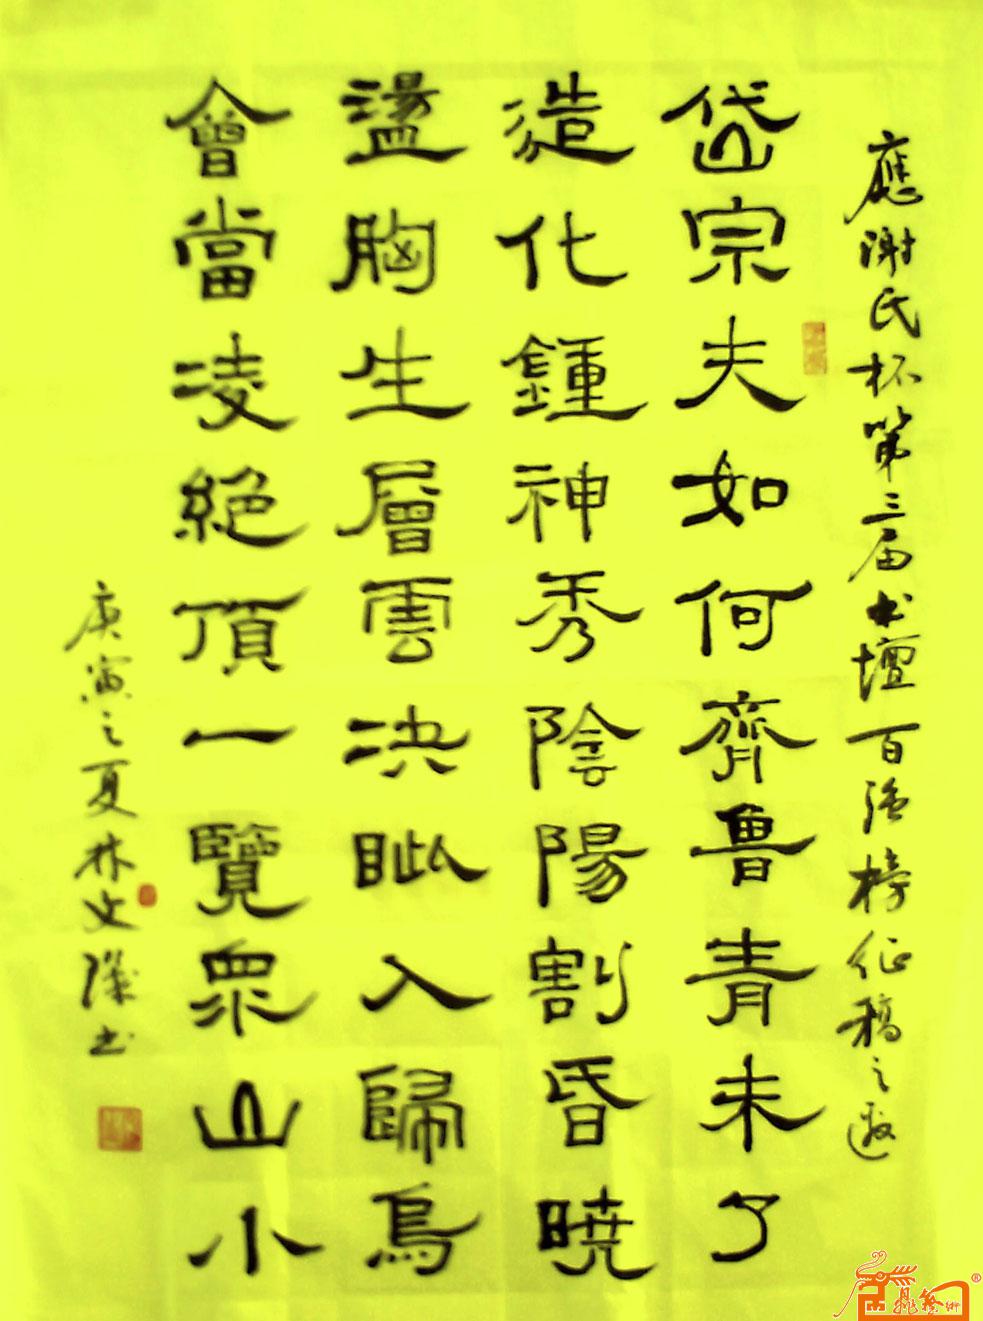 應謝氏杯第三届书壇百强榜征稿之邀
岱宗夫如何齊魯青未了
造化鍾神秀陰陽割昏曉
盪胸生層雲決眦入歸鳥
會當凌絕頂一覽衆山小
庚寅之夏林文隆书